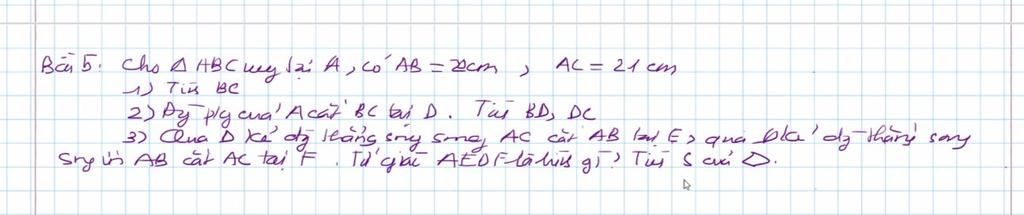 Bài 5: Cho Δ ABC vuông tại A, có AB = 20cm, AC = 21 cm
1) Tính BC
2) Đg p/g của A cắt BC tại D. Tính BD, DC
3) Qua D kẻ đg thẳng song song AC cắt AB tại E, qua D kẻ đg thẳng song
song với AB cắt AC tại F. Tứ giác AEDF là hình gì? Tính S của